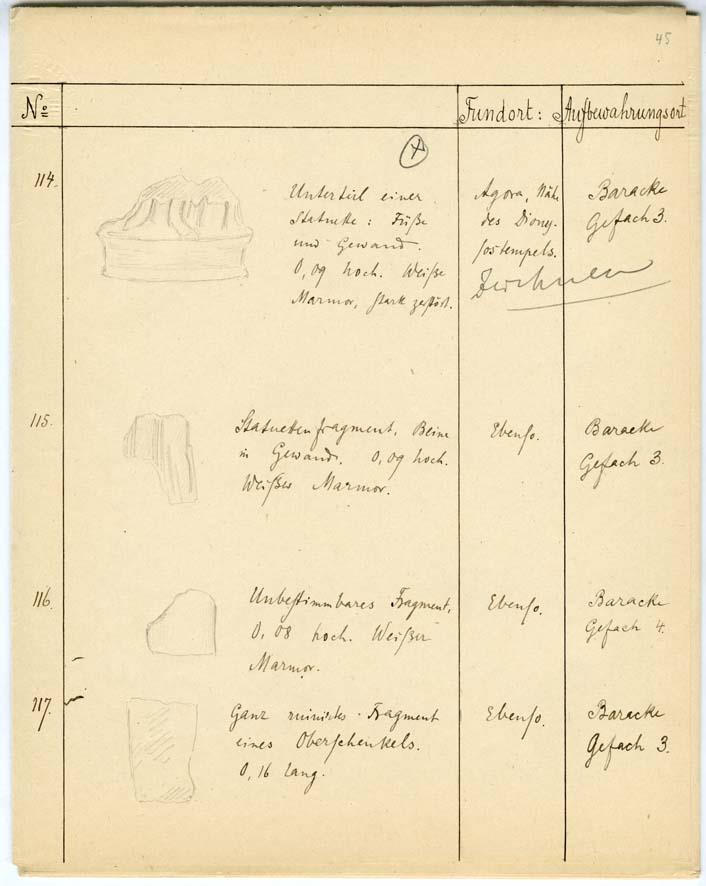 45
No Fundort: Aufbewahrungsort
114. Unterteil einer
Statuette: Füße
und Gewand.
0,09 hoch. Weißer
Marmor, stark zerstört.
Agora, Nähe
des Diony-
sostempels.
Zeichnen
Baracke
Gefach 3.
115. Statuettenfragment, Beine
in Gewand. 0,09 hoch.
Weißer Marmor.
Ebenso.
Baracke
Gefach 3.
116. Unbestimmbares Fragment,
0,08 hoch. Weißer
Marmor.
Ebenso.
Baracke
Gefach 4.
117. Ganz ruiniertes Fragment
eines Oberschenkels.
0,16 lang.
Ebenso.
Baracke
Gefach 3.